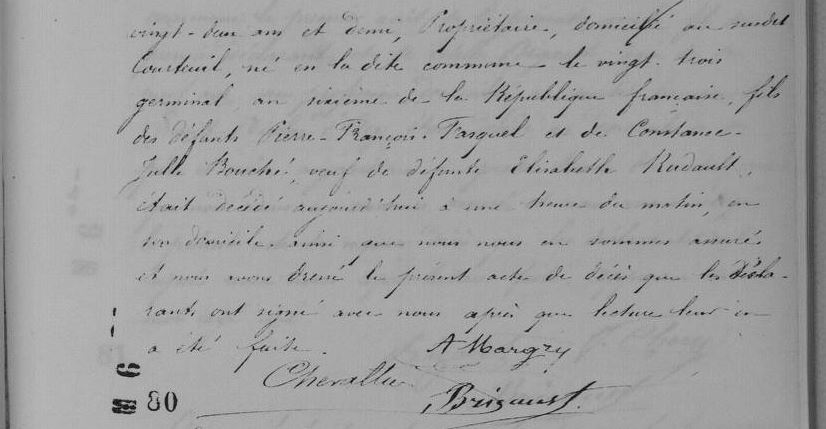 vingt-deux ans et demi, Propriétaire, domicilié au susdit
Courteuil, né en la dite commune le vingt-trois
germinal an sixième de la République française, fils
des défunts Pierre-François Pasquel et de Constance-
Julle Bouché, veuf de défunte Elisabeth Rudault,
était décédé aujourd'hui à une heure du matin, en
son domicile ainsi que nous nous en sommes assuré
et nous avons dressé le présent acte de décès que les décla-
rants ont signé avec nous après que lecture leur en
a été faite.
A Margry
Chevallier
Brigault
80